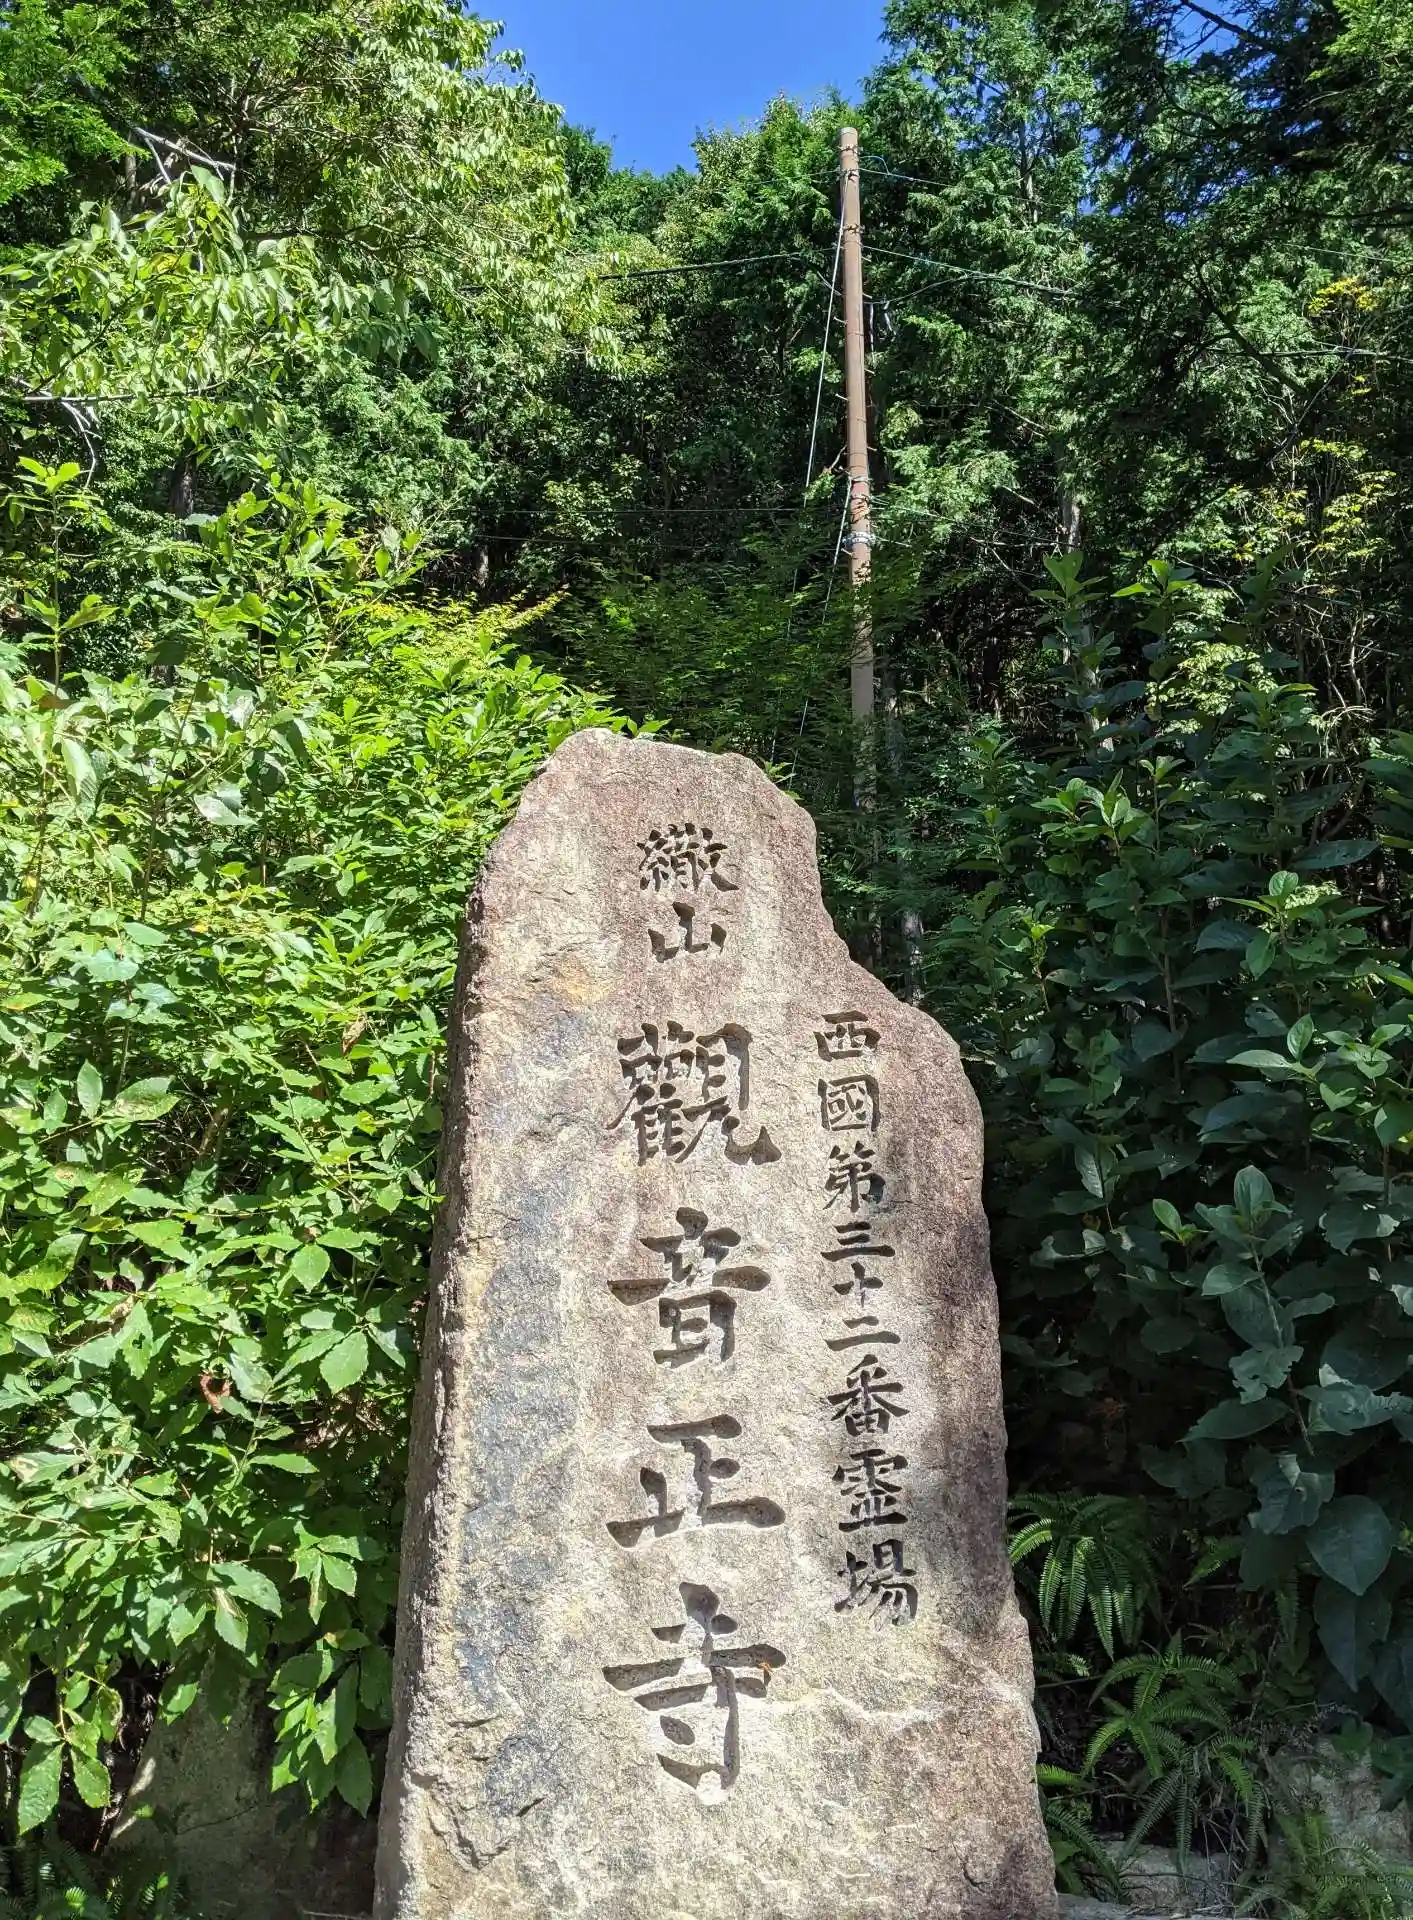 西國第三十二番霊場
繖山 觀音正寺